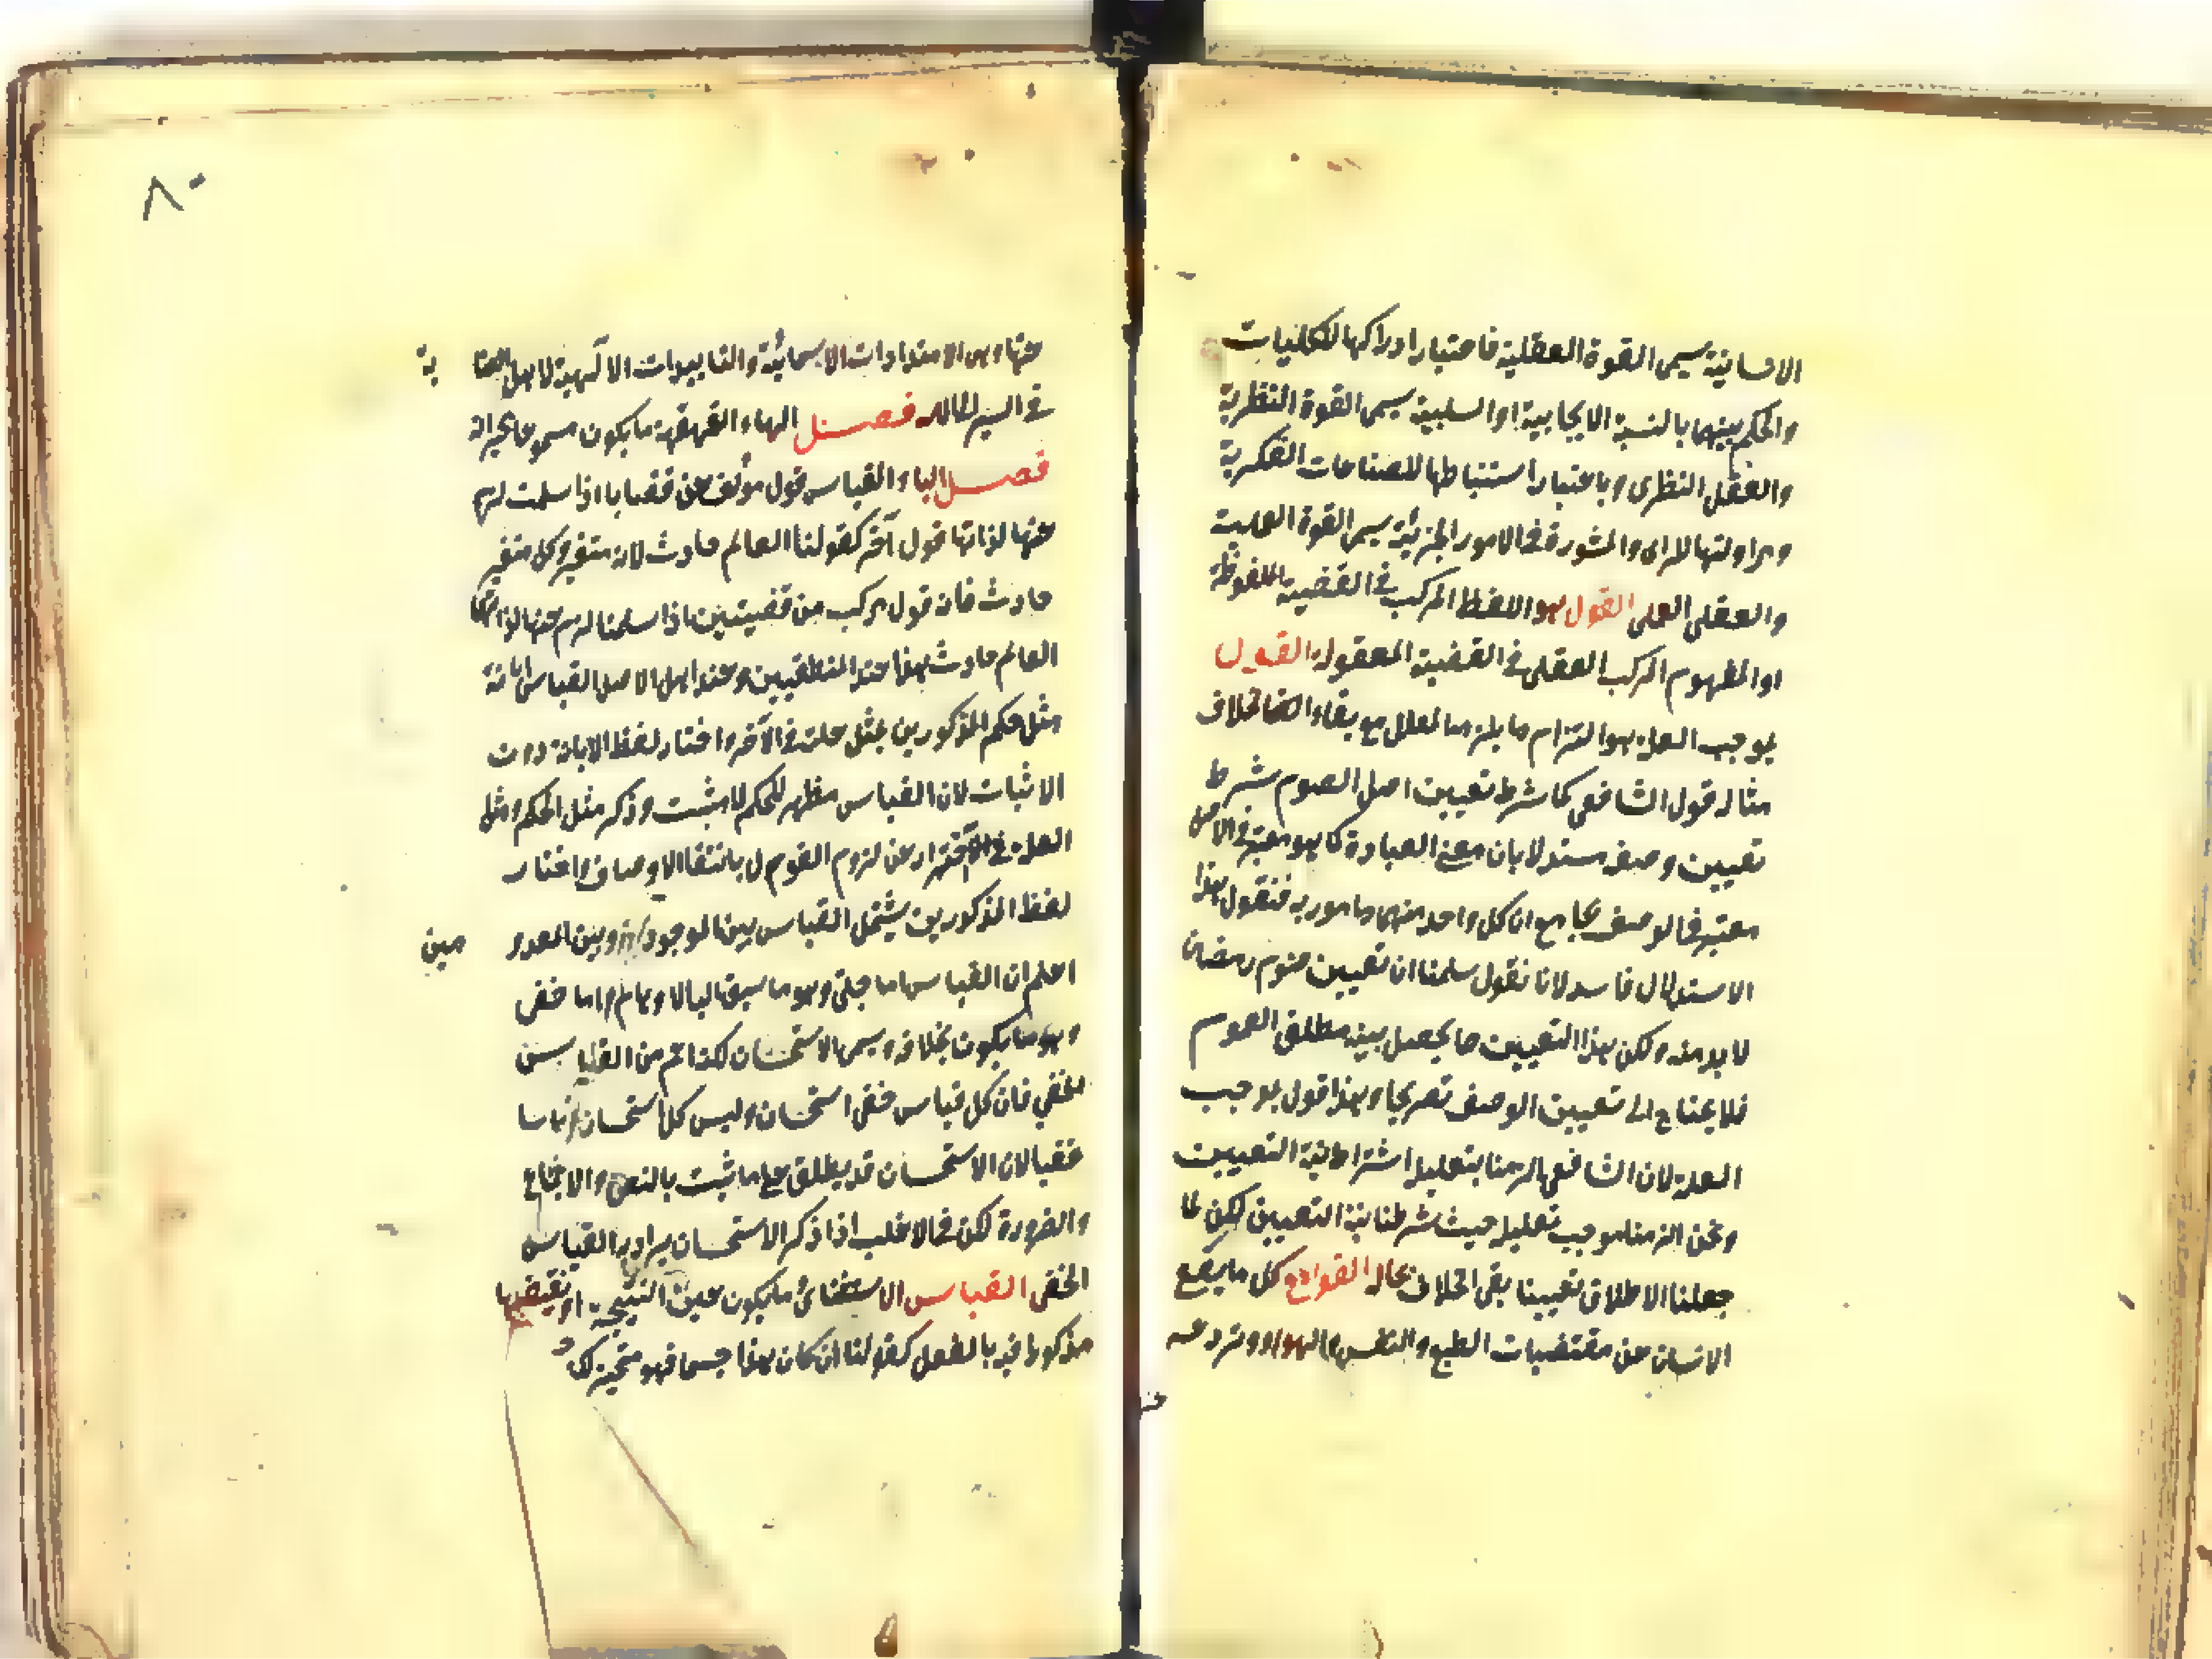 الانسانية يسمى القوة العقلية فاعتبار ادراكها للكليات
والحكم بينهما بالنسبة الايجابية او السلبية يسمى القوة النظرية
والعقل النظرى وباعتبار استنباطها للصناعات الفكرية
ومزاولتها للراى والمشورة فى الامور الجزئية يسمى القوة العملية
والعقلى العملى القول هو اللفظ المركب فى القضية الملفوظة
او المفهوم المركب العقلى فى القضية المعقولة القول
بموجب العلة هو التزام ما يلزمه المعلل مع بقاء الخلاف
مثاله قول الشافعى كما شرط تعيين اصل الصوم شرط
تعيين وصفه مستدلا بان معنى العبادة كما هو معتبر فى الاصل
معتبر فى الوصف بجامع ان كل واحد منهما مامور به فنقول هذا
الاستدلال فاسد لانا نقول سلمنا ان تعيين صوم رمضان
لا بد منه ولكن هذا التعيين مما يحصل بنية مطلق الصوم
فلا يحتاج الى تعيين الوصف تصريحا وهذا قول بموجب
العلة لان الشافعى الزمنا بتعليله اشتراط نية التعيين
ونحن الزمنا بموجب تعليله حيث شرطنا نية التعيين لكن لما
جعلنا الاطلاق تعيينا بقى الخلاف بحاله القوامع كل ما يقمع
الانسان عن مقتضيات الطبع والنفس والهوا ووتردعه
٨٠
عنها وهى الامتدادات الاسمائية والتاييدات الالهية لاهل العنا ية
فى السير الى الله فصل الهاء القهقهة ما يكون مسموعا لجيرانه
فصل الياء القياس قول مؤلف من قضايا اذا سلمت لزم
عنها لذاتها قول آخر كقولنا العالم حادث لانه متغير وكل متغير
حادث فانه قول مركب من قضيتين اذا سلمنا لزم عنها لذاتها
العالم حادث هذا عند المنطقيين وعند اهل الاصل القياس ابانة
مثل حكم المذكورين بمثل علته فى الآخر واختار لفظ الابانة دون
الاثبات لان القياس مظهر للحكم لا مثبت وذكر مثل الحكم ومثل
العلة احتراز عن لزوم القول بانتقال الاوصاف واختار
لفظ المذكورين يشتمل القياس بين الموجودين وبين المعدو مين
اعلم ان القياس اما جلى وهو ما سبق اليه الاوهام واما خفى
وهو ما يكون بخلافه ويسمى الاستحسان لكنه اعم من القياس
الخفى فان كل قياس خفى استحسان وليس كل استحسان قياسا
خفيا لان الاستحسان قد يطلق على ما ثبت بالنص والاجماع
والضرورة لكن فى الاغلب اذا ذكر الاستحسان يراد به القياس
الخفى القياس الاستثنائى ما يكون عين النتيجة او نقيضها
مذكورا فيه بالفعل كقولنا ان كان هذا جسما فهو متحيز لكنه